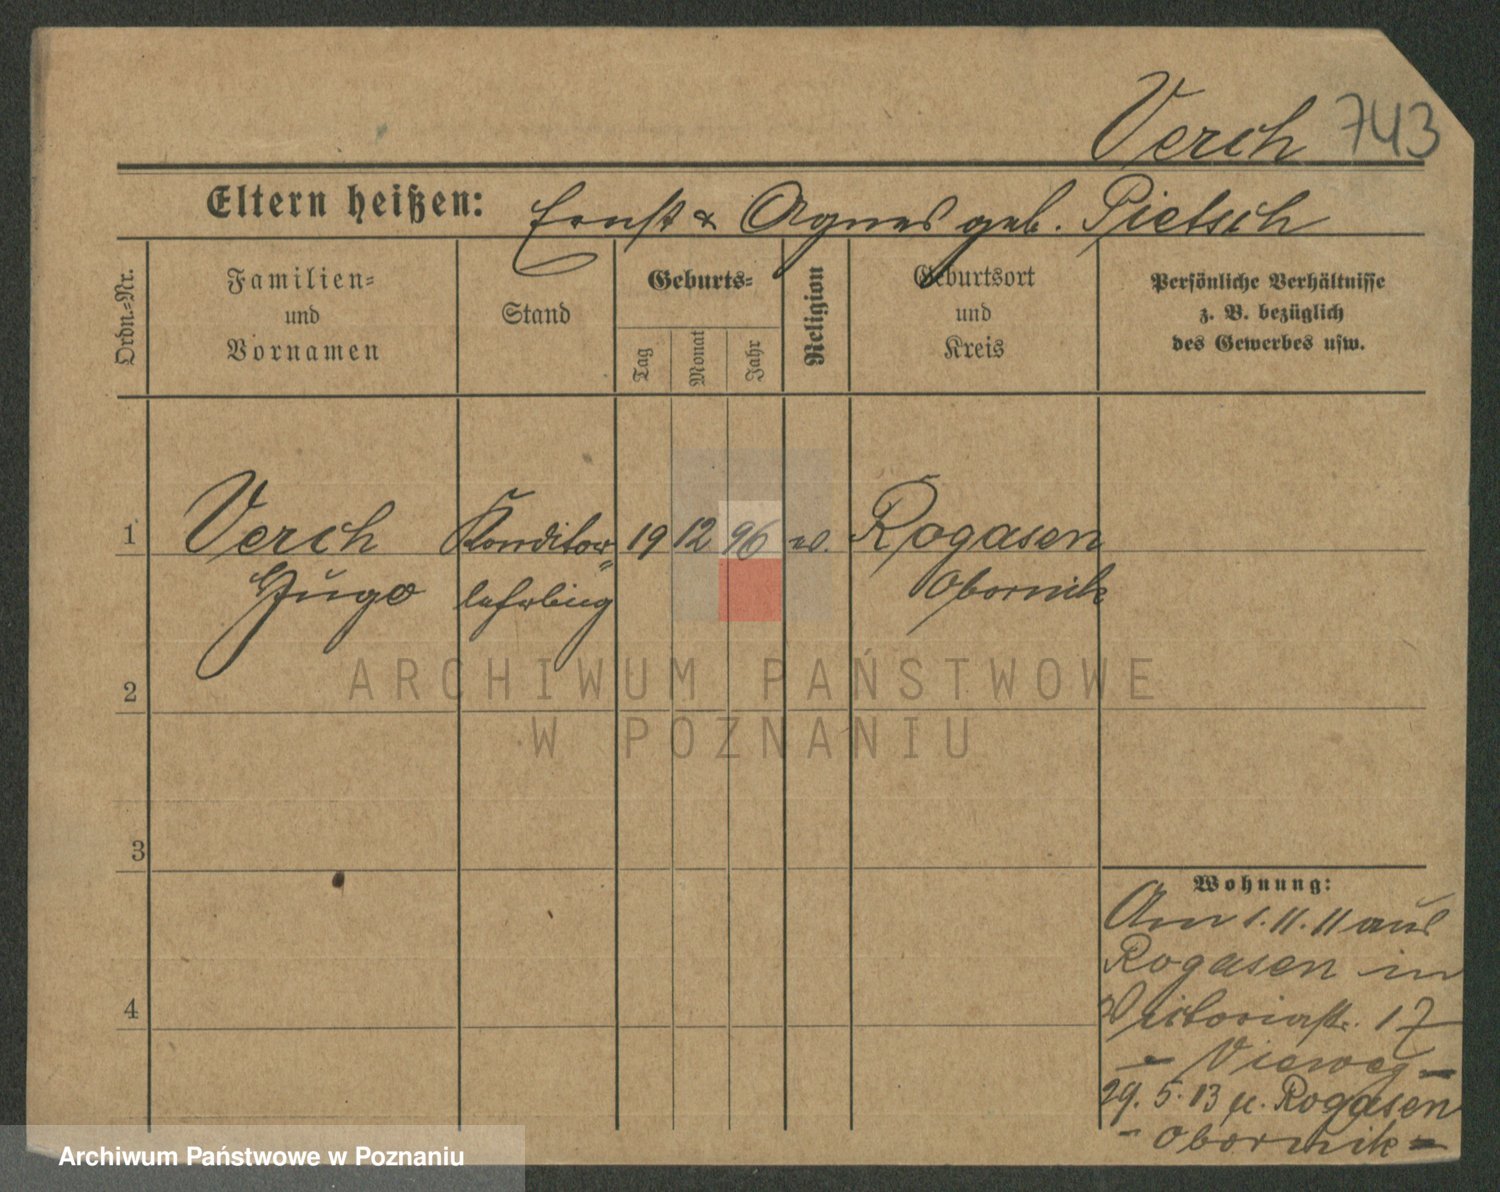 Verch 743
Eltern heißen: Ernst & Agnes geb. Pietsch
Ordn.=Nr.
Familien=
und
Vornamen
Stand
Geburts=
Tag
Monat
Jahr
Religion
Geburtsort
und
Kreis
Persönliche Verhältnisse
z. B. bezüglich
des Gewerbes usw.
1 Verch Konditor= 19 12 96 ev. Rogasen
Hugo lehrling Obornik
2
3
4
Wohnung:
Am 1.11.11 aus
Rogasen in
Victoriastr. 17
- Vieweg -
29.5.13 n. Rogasen
- Obornik -
ARCHIWUM PAŃSTWOWE
W POZNANIU
Archiwum Państwowe w Poznaniu